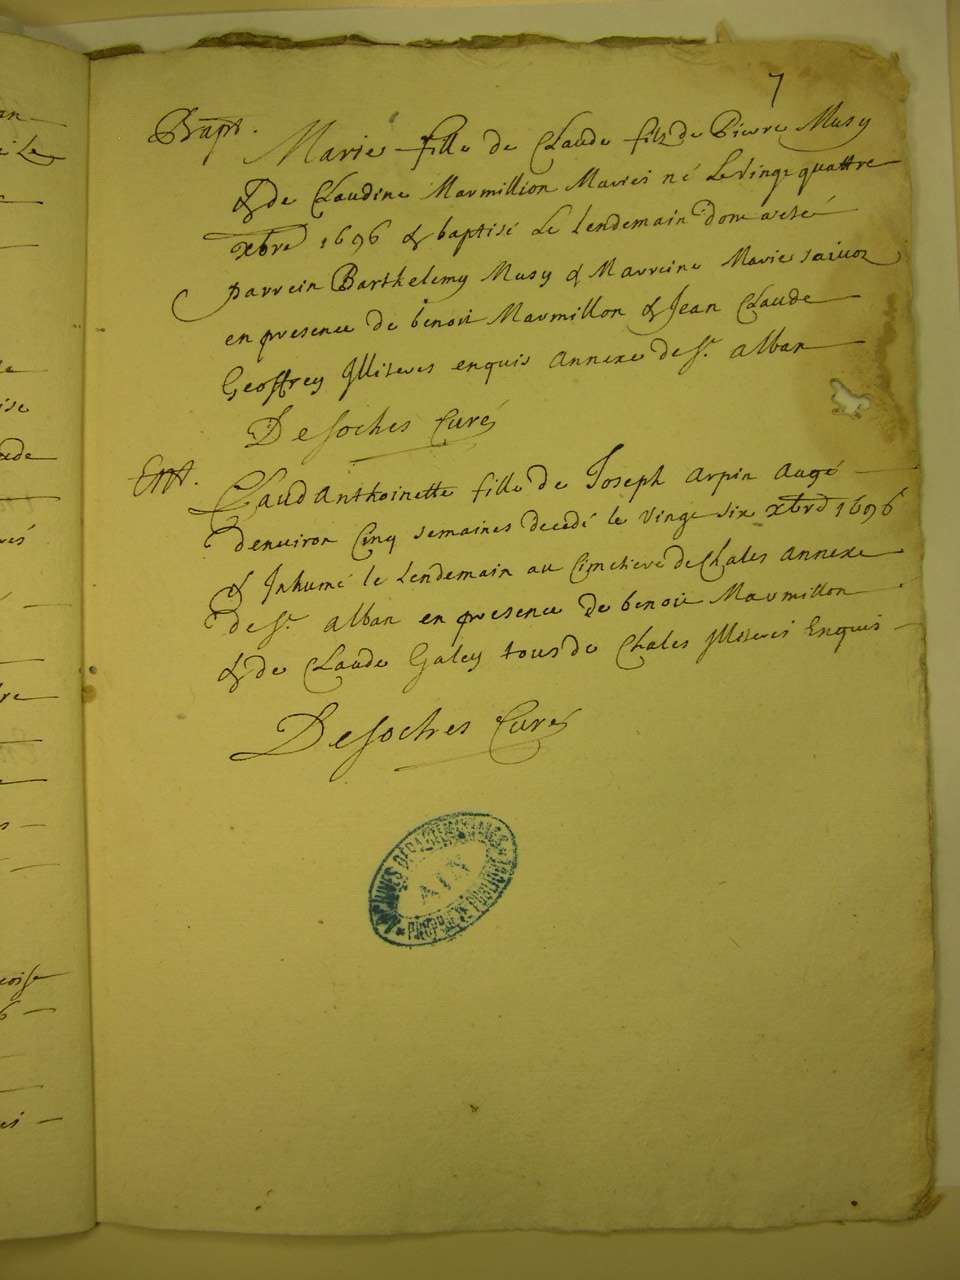 7
Bapt. Marie fille de Claude fils de Pierre Musy
& de Claudine Marmillion Mariés né le vingt quattre
xbre 1696 & baptisé le lendemain dont a eté
parrein Barthelemy Musy & Marreine Marie
en presence de benoit Marmillon & Jean Claude
Geoffrey Illiteres enquis annexe de St. alban
Desoches Curé
Ent. Claud Anthoinette fille de Joseph Arpin Augé
denviron Cinq semaines decedé le vingt six xbre 1696
& Inhumé le lendemain au Cimetiere de Chales annexe
de St. alban en presence de benoit Marmillon
& de Claude Galey tous de Chales Illiteres Enquis
Desoches Curé
ARCHIVES DÉPARTEMENTALES
AIN
PROPRIÉTÉ PUBLIQUE